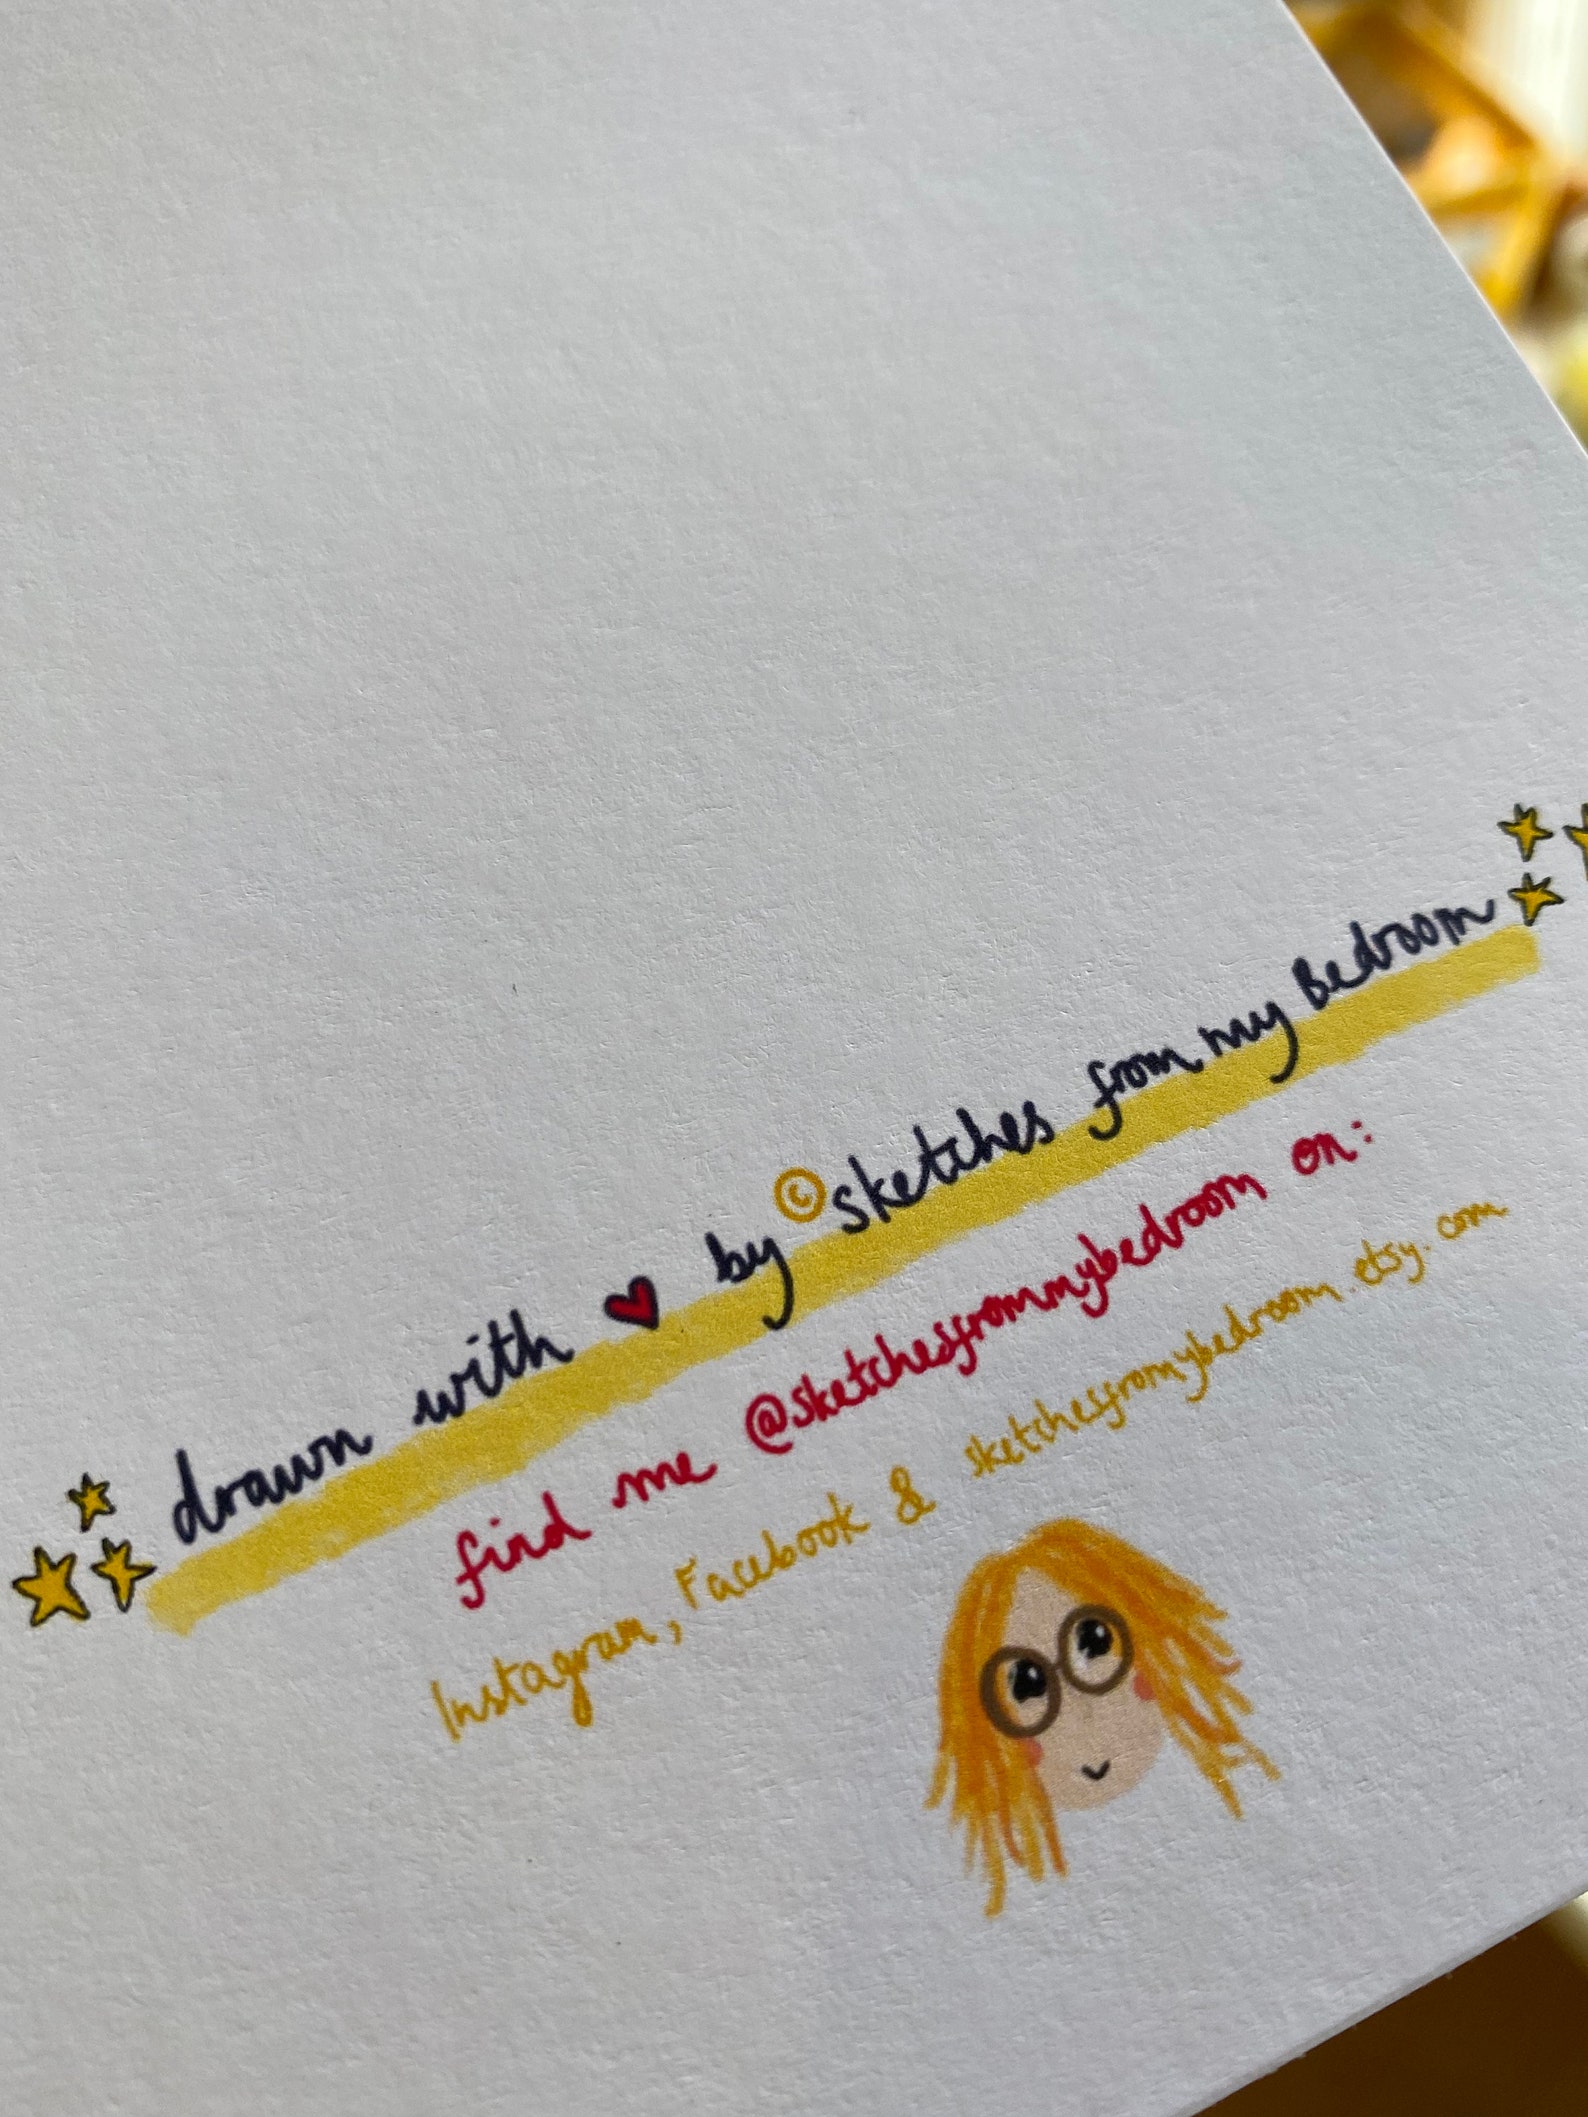 drawn with ♥ by ©sketches from my Bedroom
find me @sketchesfrommybedroom on:
Instagram, Facebook & sketchesfrommybedroom.etsy.com